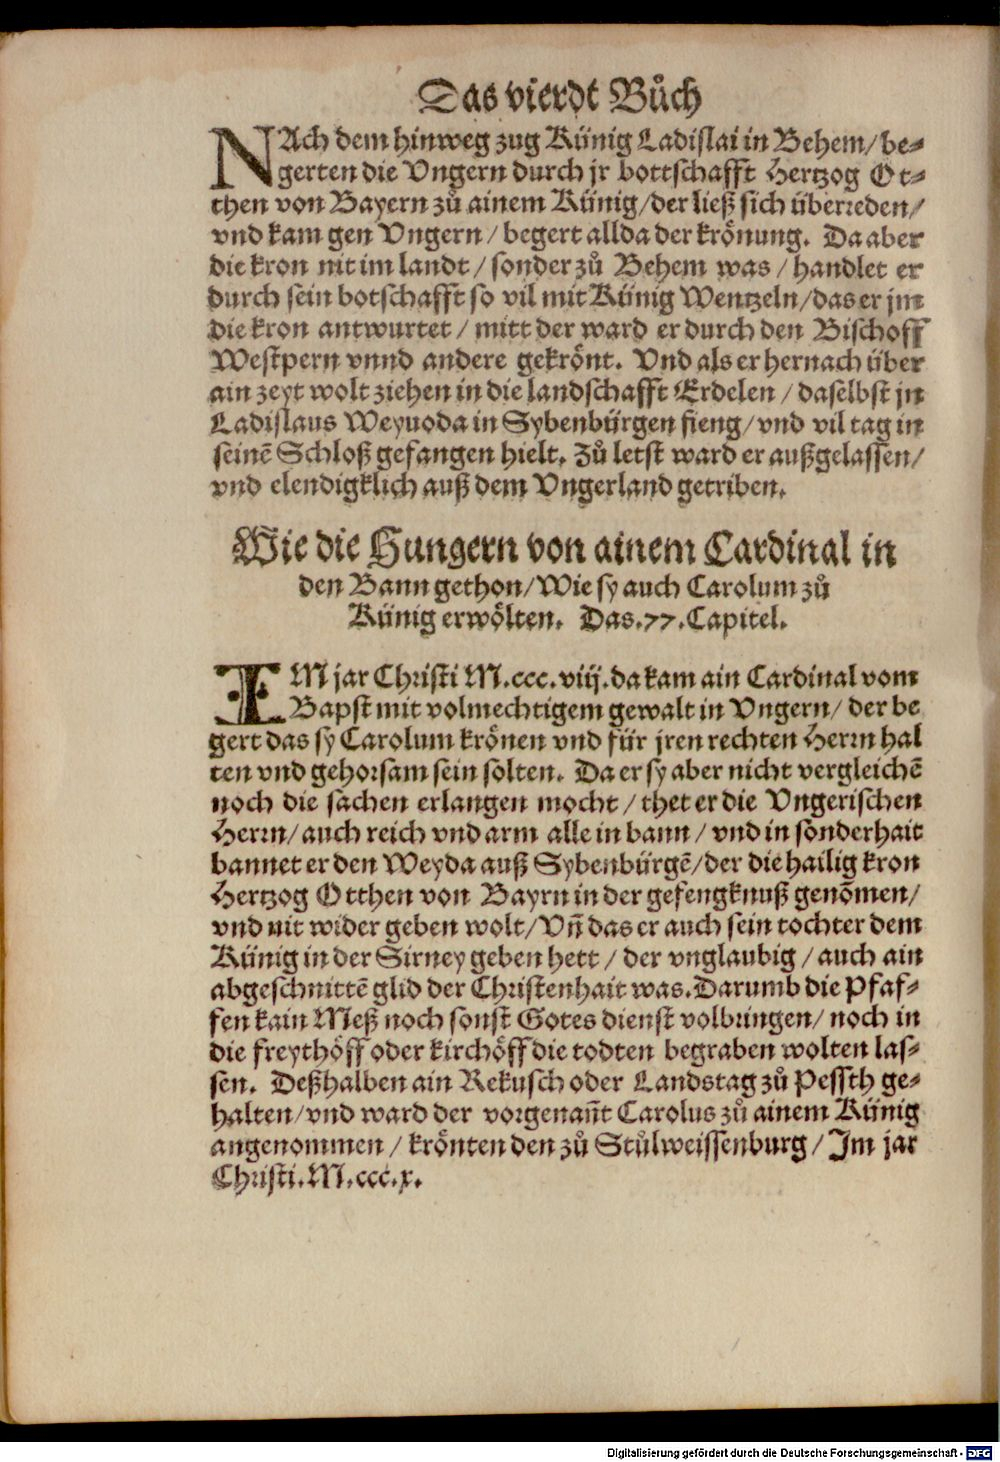 Das vierdt Bůch
NAch dem hinweg zug Künig Ladislai in Behem/ be⸗
gerten die Vngern durch jr bottschafft Hertzog Ot⸗
then von Bayern zů ainem Künig/ der ließ sich überreden/
vnd kam gen Vngern/ begert allda der krönung. Da aber
die kron nit im landt/ sonder zů Behem was/ handlet er
durch sein botschafft so vil mit Künig Wentzeln/ das er jm
die kron antwurtet/ mitt der ward er durch den Bischoff
Westpern vnnd andere gekrönt. Vnd als er hernach über
ain zeyt wolt ziehen in die landschafft Erdelen/ daselbst jn
Ladislaus Weyuoda in Sybenbürgen fieng/ vnd vil tag in
seinē Schloß gefangen hielt. Zů letst ward er außgelassen/
vnd elendigklich auß dem Vngerland getriben.
Wie die Hungern von ainem Cardinal in
den Bann gethon/ Wie sy auch Carolum zů
Künig erwölten. Das.77.Capitel.
IM jar Christi M.ccc.viij.da kam ain Cardinal vom
Bapst mit volmechtigem gewalt in Vngern/ der be
gert das sy Carolum krönen vnd für jren rechten Herrn hal
ten vnd gehorsam sein solten. Da er sy aber nicht vergleichē
noch die sachen erlangen mocht/ thet er die Vngerischen
Herrn/ auch reich vnd arm alle in bann/ vnd in sonderhait
bannet er den Weyda auß Sybenbürgē/ der die hailig kron
Hertzog Otthen von Bayrn in der gefengknuß genōmen/
vnd nit wider geben wolt/ Vn̄ das er auch sein tochter dem
Künig in der Sirney geben hett/ der vnglaubig/ auch ain
abgeschnittē glid der Christenhait was. Darumb die Pfaf⸗
fen kain Meß noch sonst Gotes dienst volbringen/ noch in
die freythöff oder kirchöff die todten begraben wolten las⸗
sen. Deßhalben ain Rekusch oder Landstag zů Pessth ge⸗
halten/ vnd ward der vorgenan̄t Carolus zů ainem Künig
angenommen/ krönten den zů Stůlweissenburg/ Im jar
Christi.M.ccc.x.
Digitalisierung gefördert durch die Deutsche Forschungsgemeinschaft - DFG